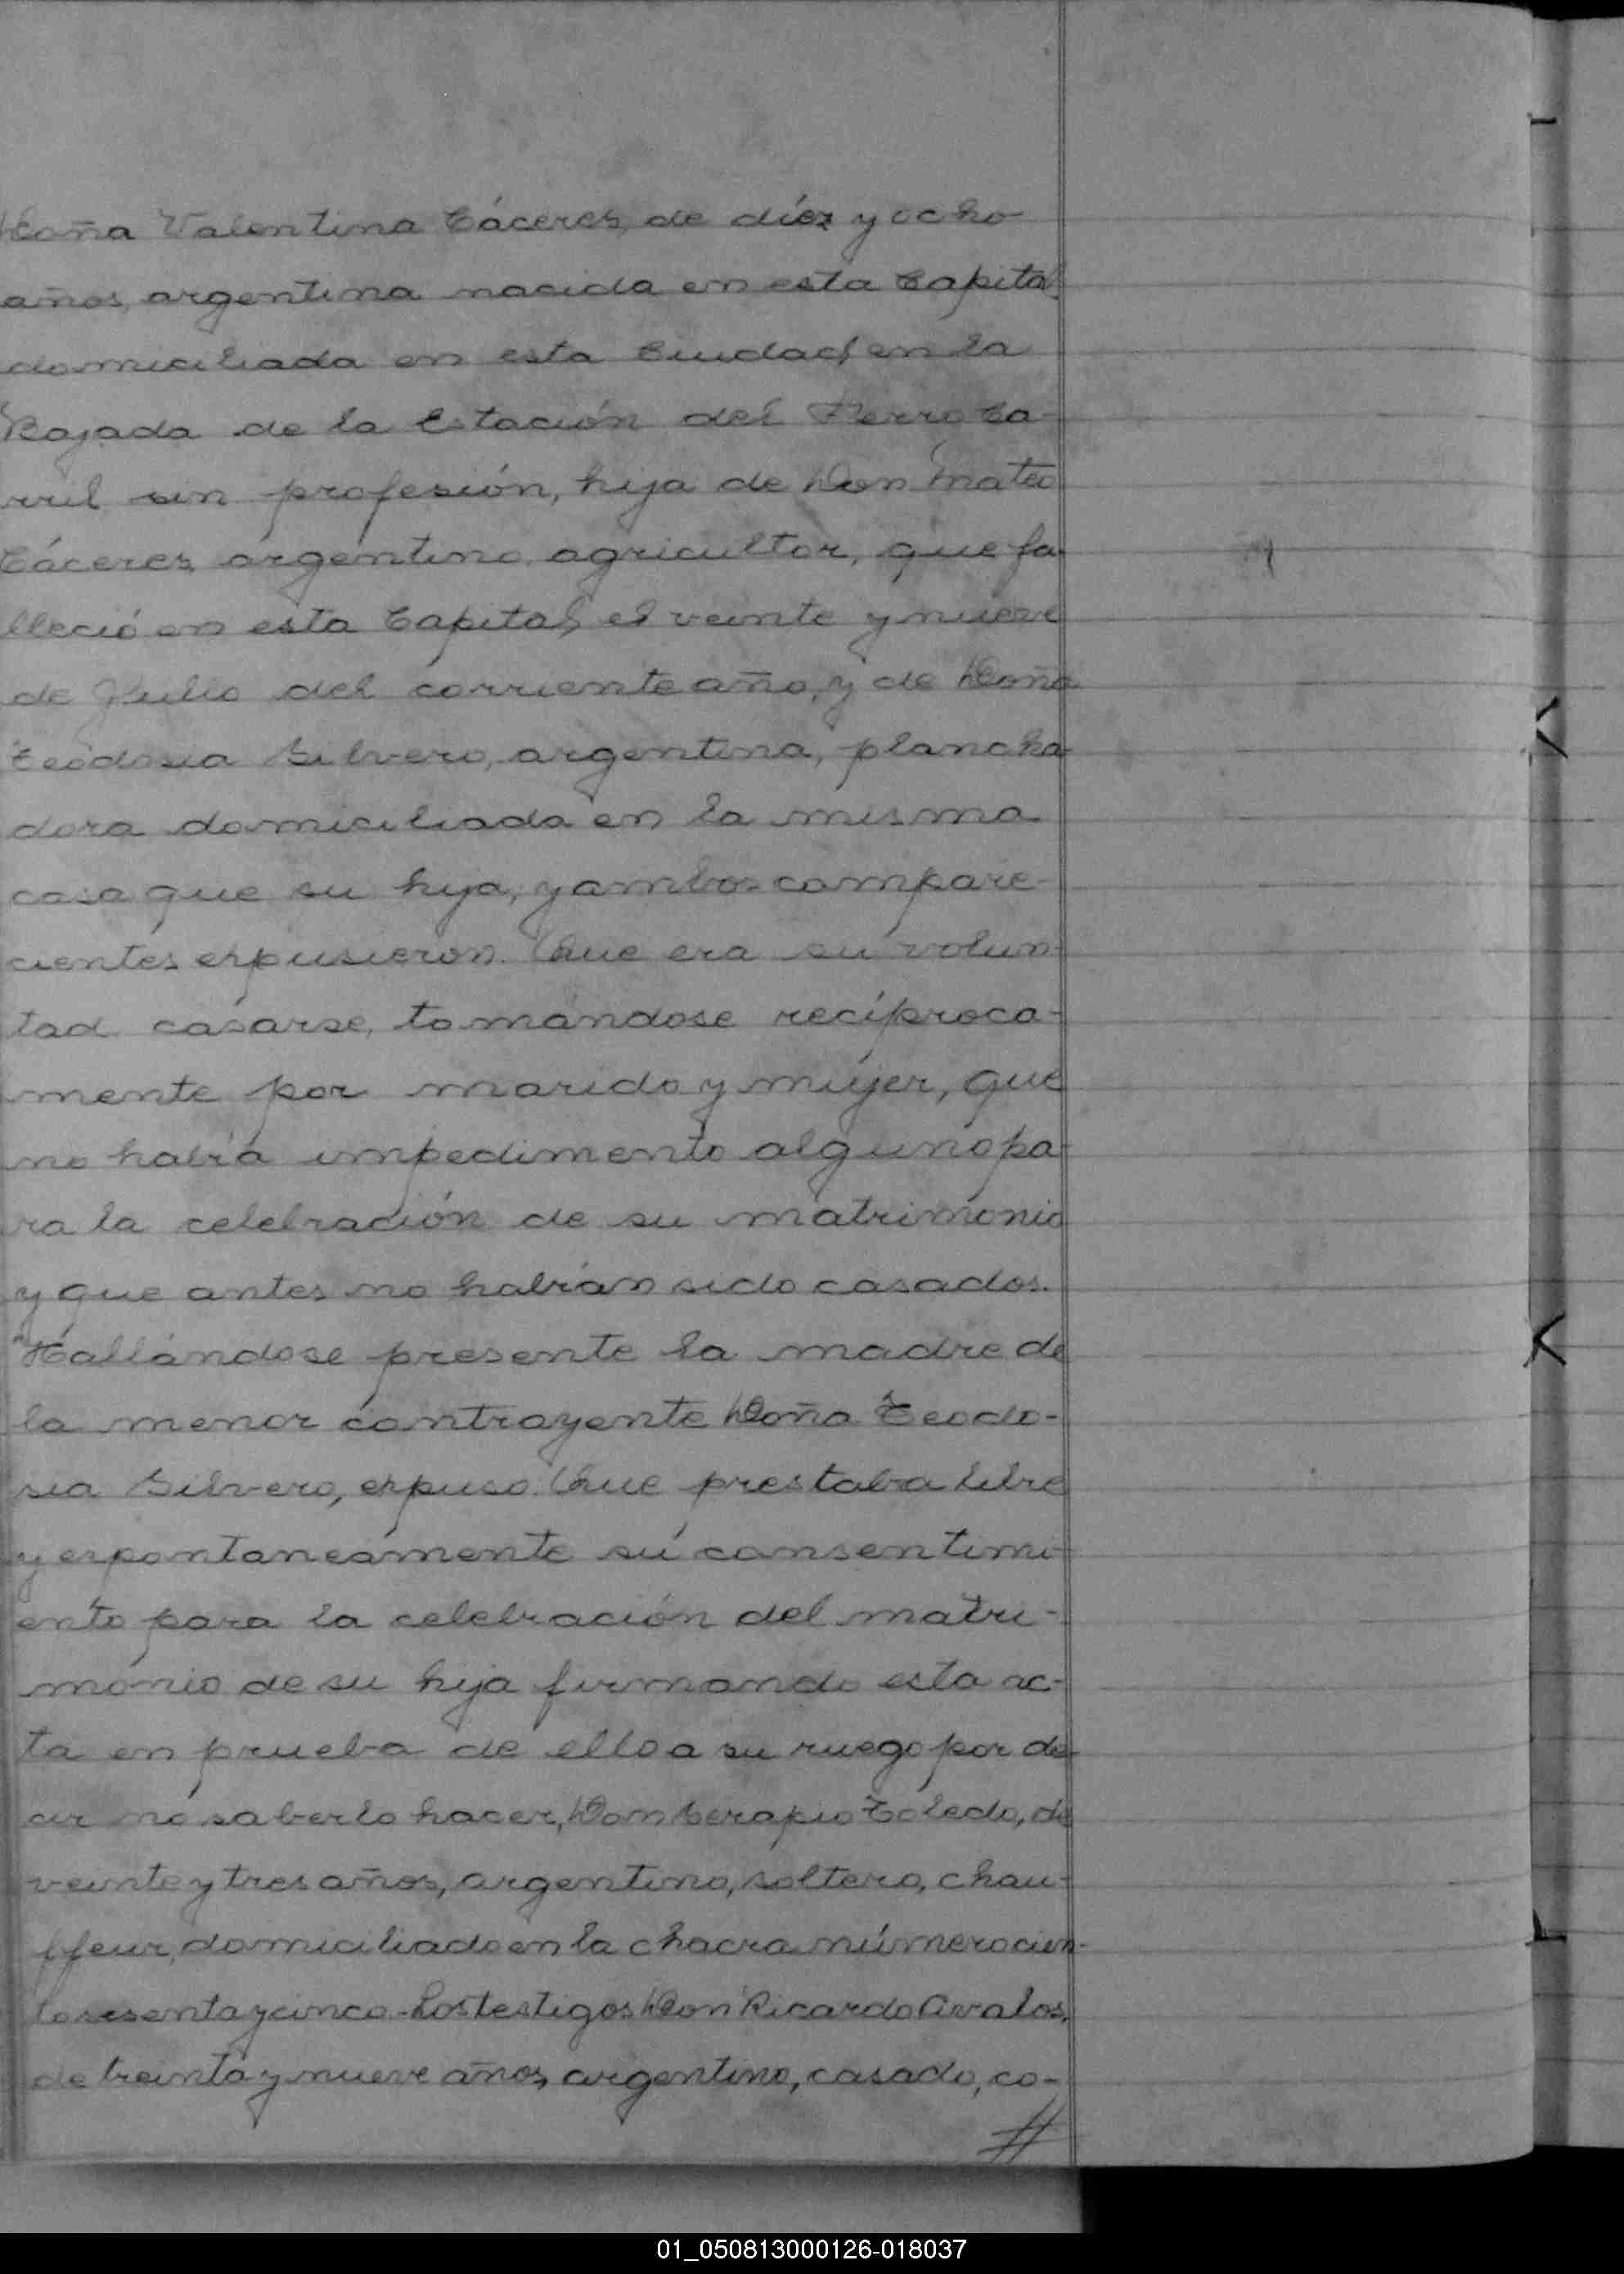 Doña Valentina Cáceres, de diez y ocho
años, argentina nacida en esta Capital,
domiciliada en esta Ciudad, en la
Bajada de la Estación del Ferro Ca-
rril sin profesión, hija de Don Mateo
Cáceres, argentino, agricultor, que fa-
lleció en esta Capital, el veinte y nueve
de Julio del corriente año, y de Doña
Teodosia Silvero, argentina, plancha-
dora domiciliada en la misma
casa que su hija, y ambos compare-
cientes expusieron. Que era su volun-
tad casarse, tomándose recíproca-
mente por marido y mujer, que
no había impedimento alguno pa-
ra la celebración de su matrimonio
y que antes no habían sido casados.
Hallándose presente la madre de
la menor contrayente Doña Teodo-
sia Silvero, expuso. Que prestaba libre
y espontaneámente su consentimi-
ento para la celebración del matri-
monio de su hija firmando esta ac-
ta en prueba de ello a su ruego por de-
cir no saberlo hacer, Don Cerapio Toledo, de
veinte y tres años, argentino, soltero, chau-
ffeur, domiciliado en la chacra número cien-
to sesenta y cinco - Los testigos Don Ricardo Avalos,
de treinta y nueve años, argentino, casado, co-
#
01_050813000126-018037